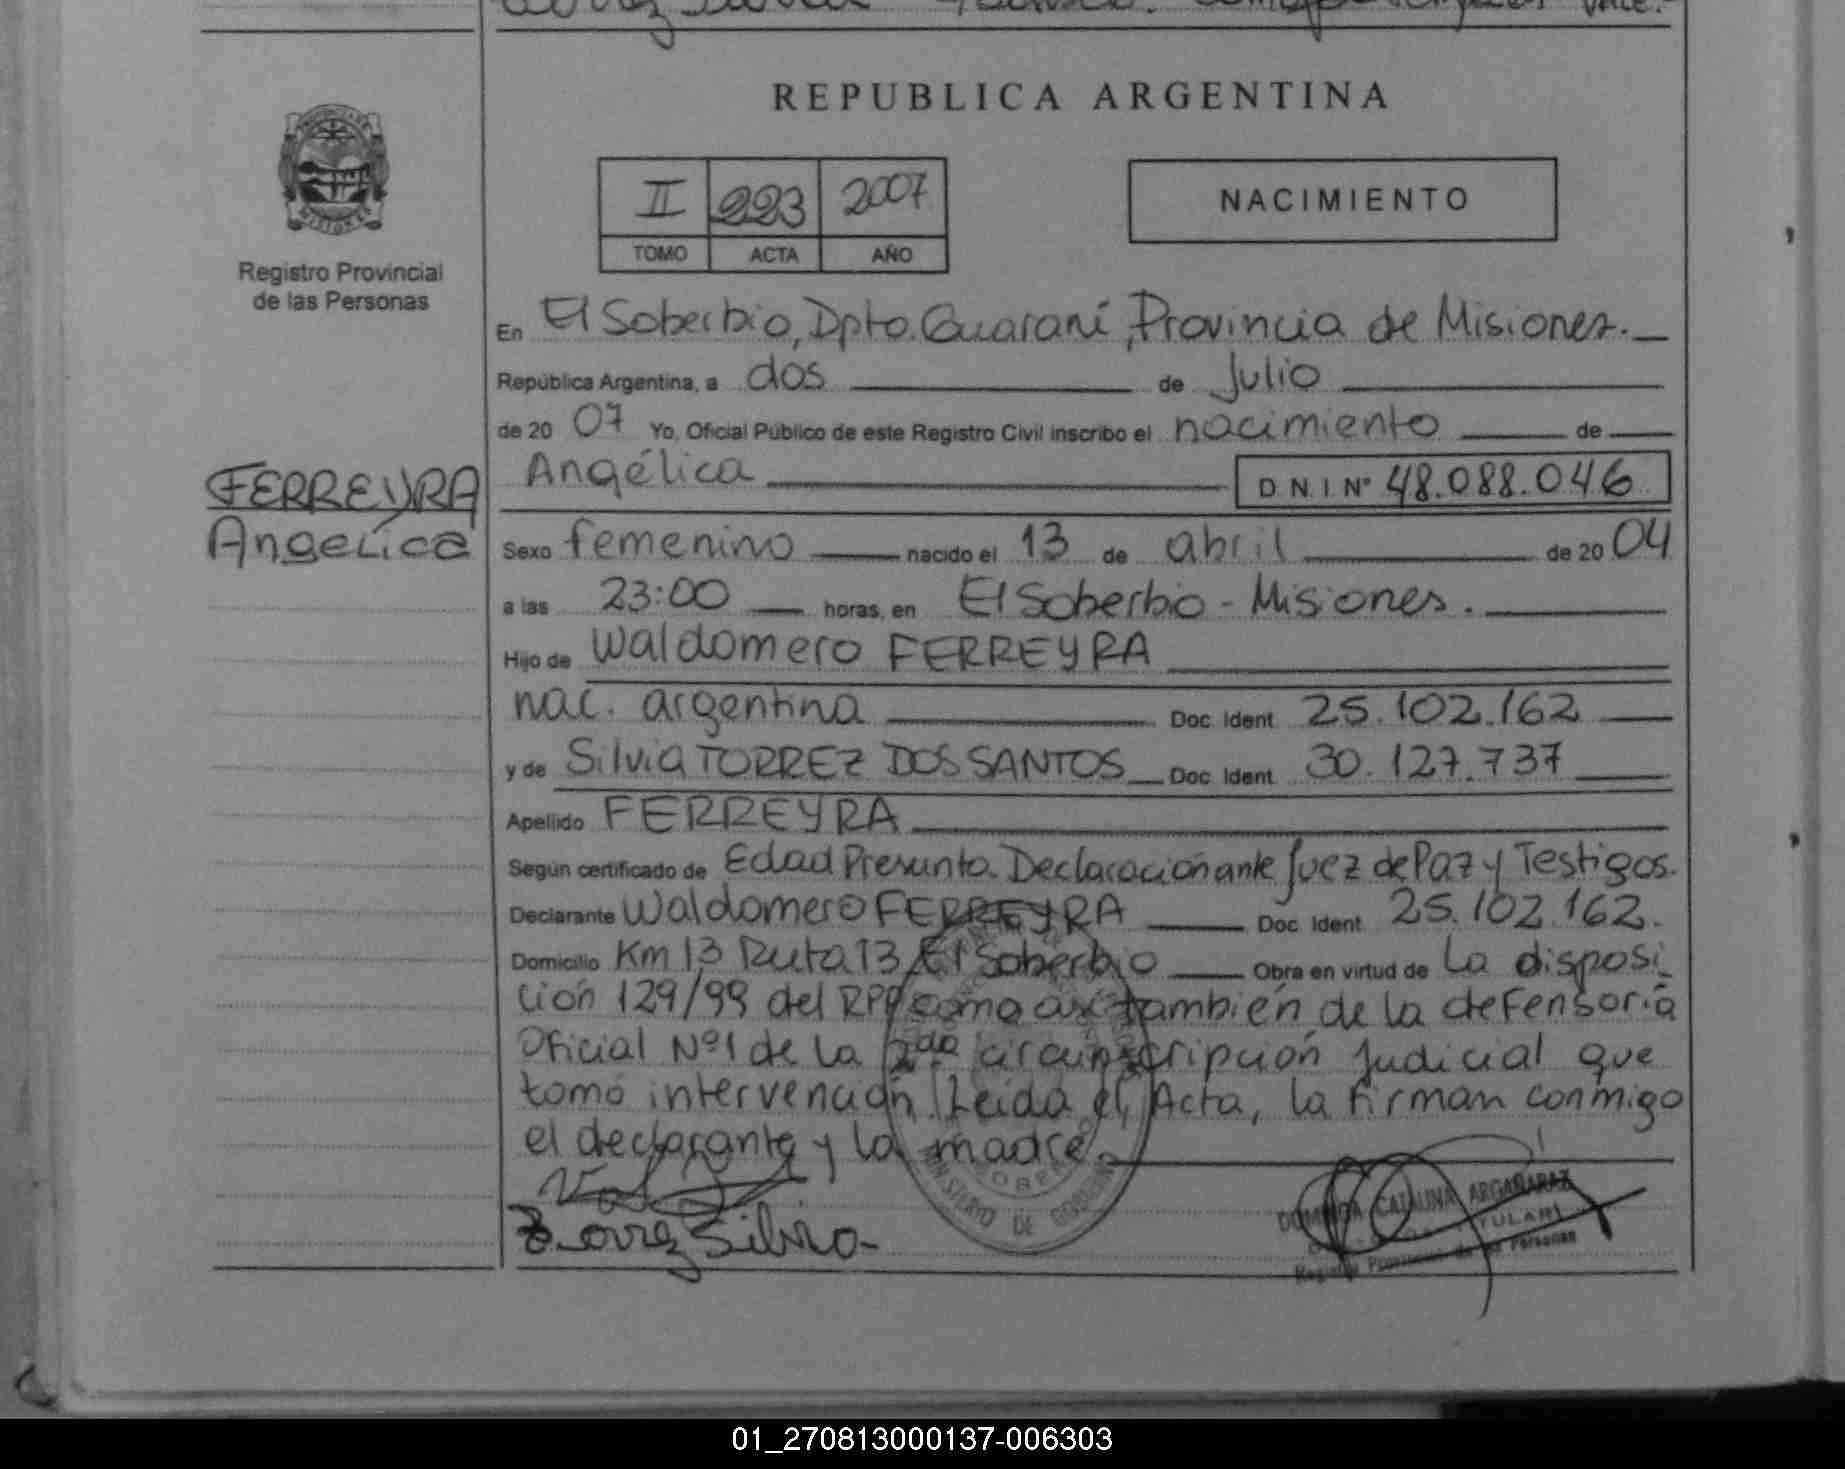 REPUBLICA ARGENTINA
PROVINCIA DE MISIONES
Registro Provincial
de las Personas
II 223 2007
TOMO ACTA AÑO
NACIMIENTO
En El Soberbio, Dpto. Guaraní, Provincia de Misiones.
República Argentina, a dos de Julio
de 20 07 Yo, Oficial Público de este Registro Civil inscribo el nacimiento de
FERREYRA
Angélica
Angélica D.N.I. N° 48.088.046
Sexo femenino nacido el 13 de abril de 20 04
a las 23:00 horas, en El Soberbio - Misiones.
Hijo de Waldomero FERREYRA
nac. argentina Doc. Ident. 25.102.162
y de Silvia TORREZ DOS SANTOS Doc. Ident. 30.127.737
Apellido FERREYRA
Según certificado de Edad Presunta. Declaración ante Juez de Paz y Testigos.
Declarante Waldomero FERREYRA Doc. Ident. 25.102.162.
Domicilio Km 13 Ruta 13 El Soberbio Obra en virtud de La disposi
ción 129/99 del RPP como así también de la defensoría
Oficial Nº1 de la 2da circunscripción Judicial que
tomó intervención. Leída el Acta, la firman conmigo
el declarante y la madre.
Torrez Silvia
MINISTERIO DE GOBIERNO
DOMINGA CATALINA ARGAÑARAZ
TITULAR
Registro Provincial de las Personas
01_270813000137-006303